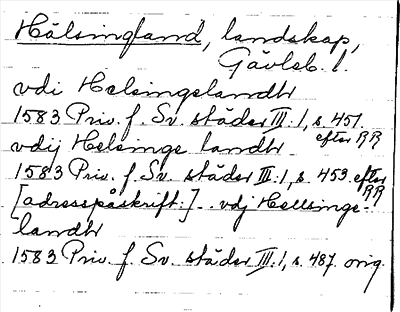 Hälsingland, landskap,
Gävleb. l.
vdi Helsingslandh
1583 Priv. f. Sv. städer III:1, s. 451.
efter RR
vdij Helsinge landh
1583 Priv. f. Sv. städer III:1, s. 453. efter
RR
[adresspåskrift:] .. vdj Hellsinge-
landh
1583 Priv. f. Sv. städer III:1, s. 487. orig.